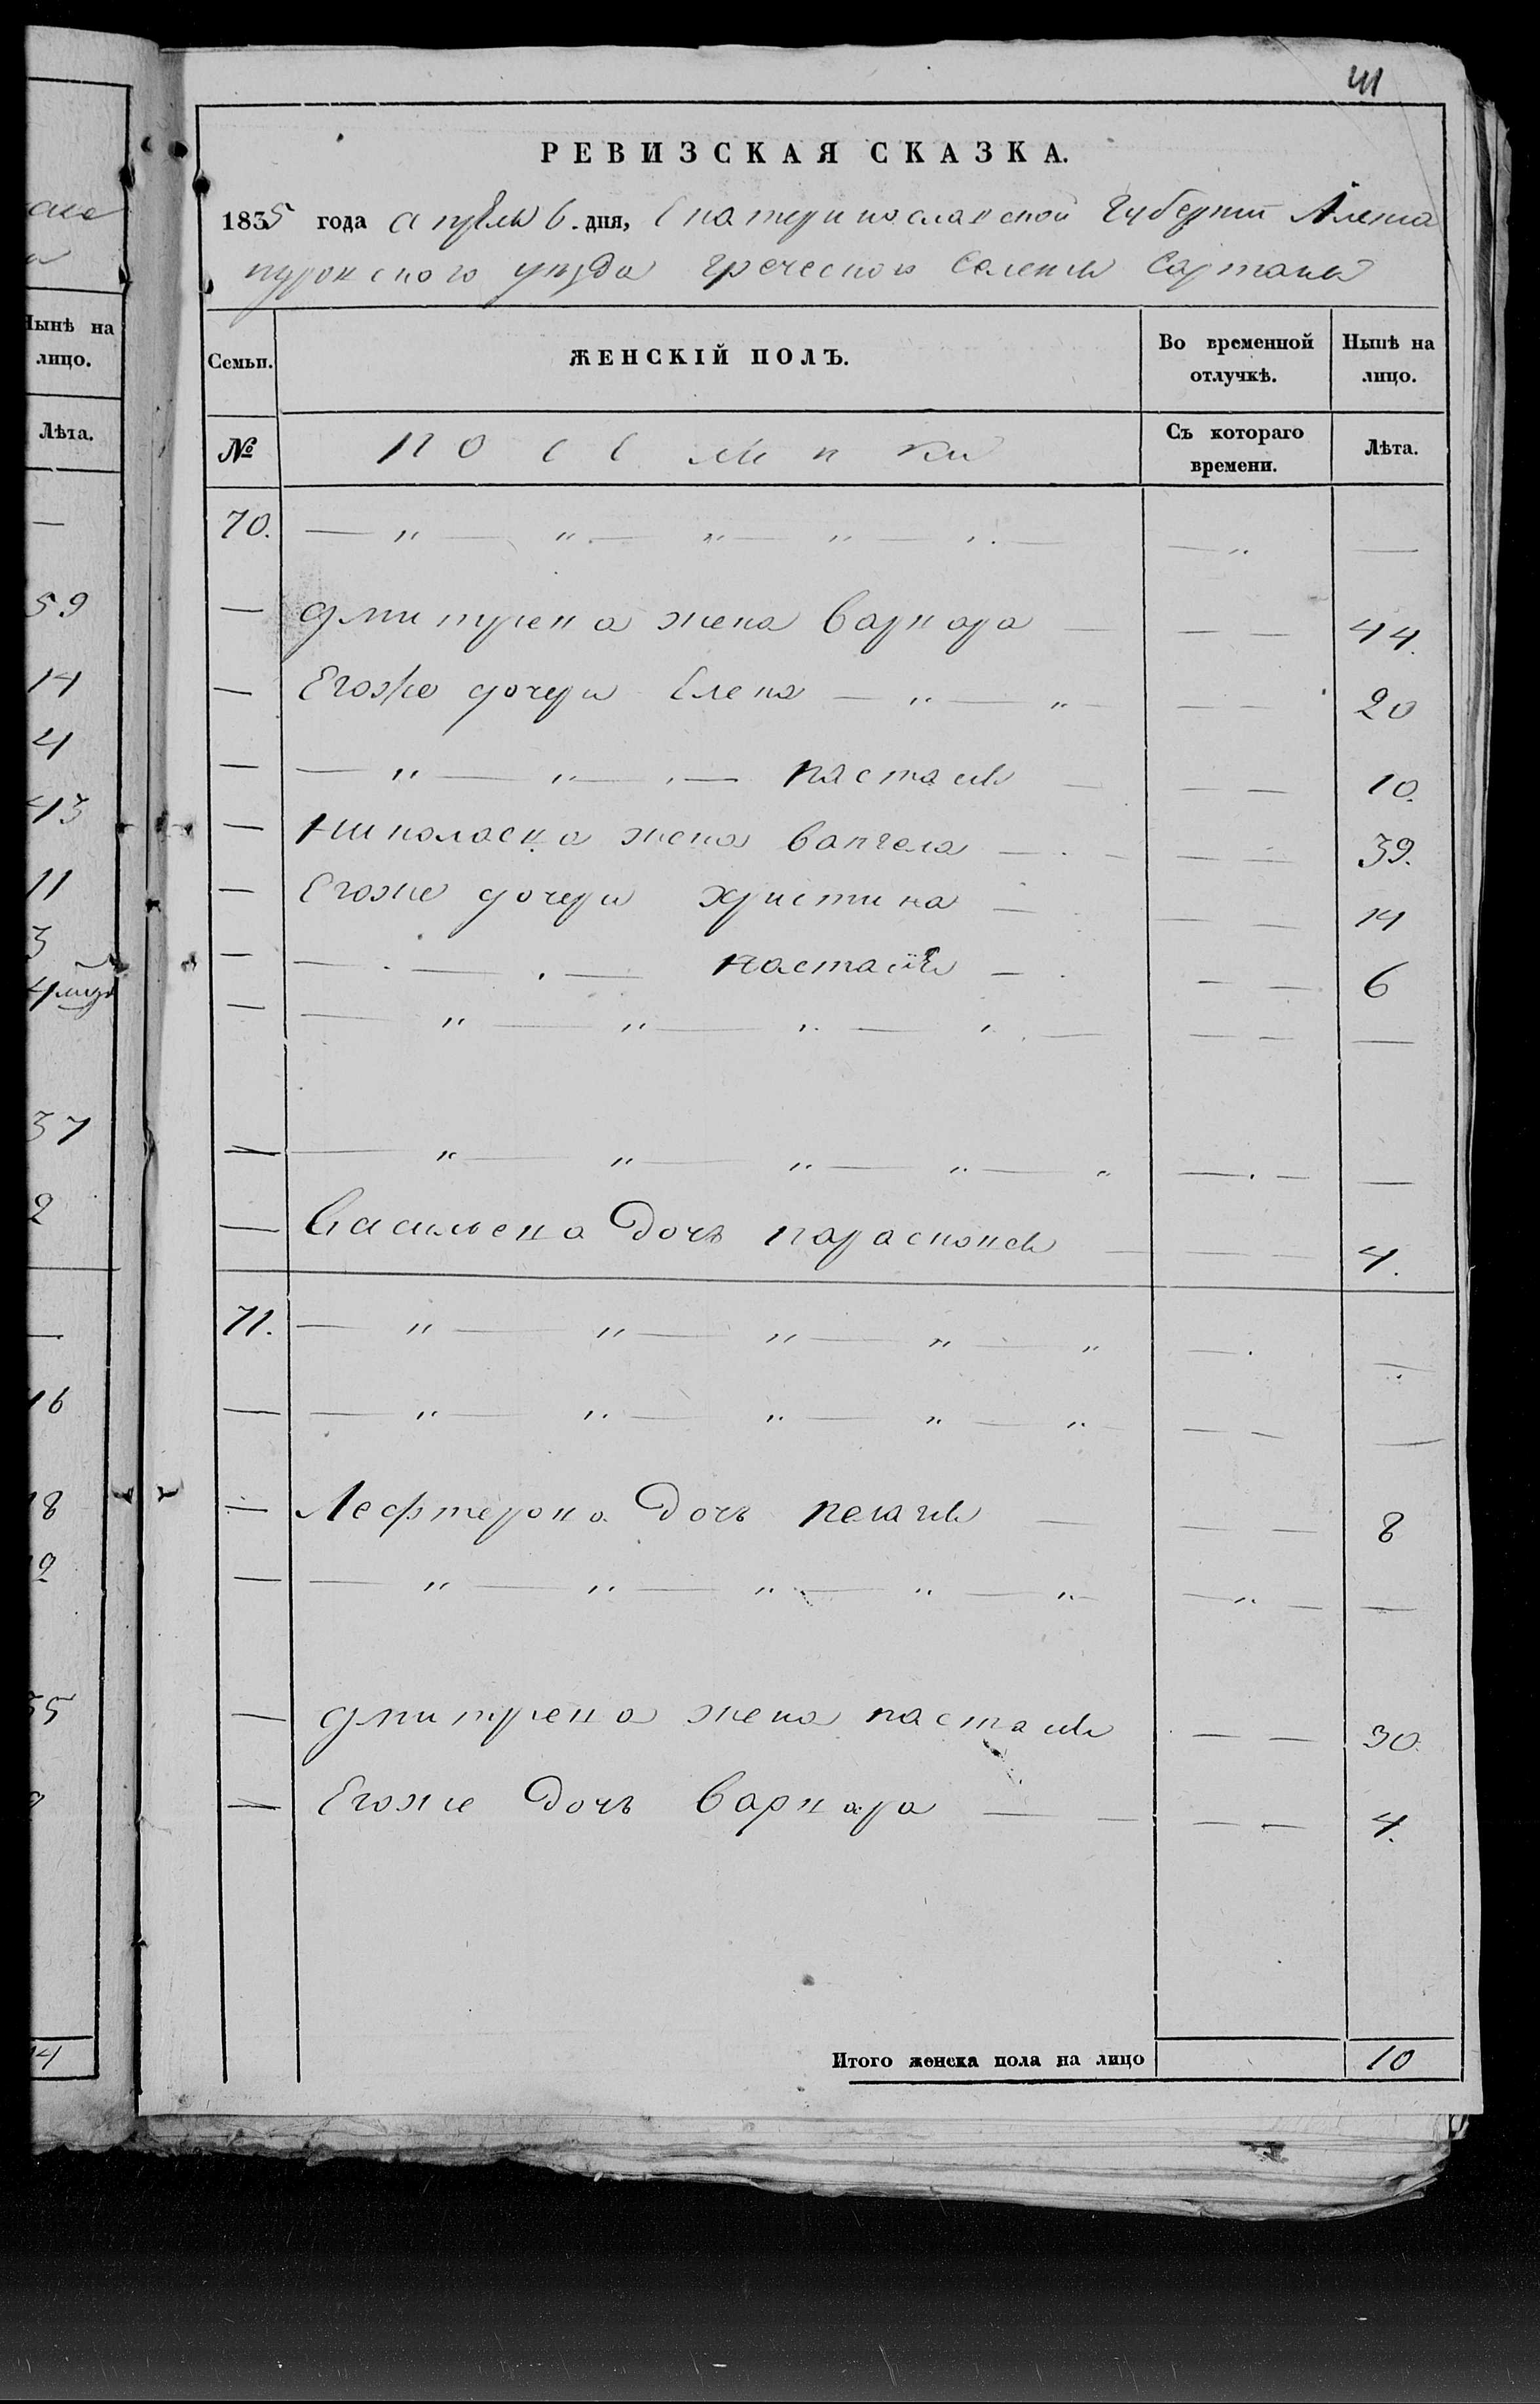 41
РЕВИЗСКАЯ СКАЗКА.
1835 года апреля 6. дня, Екатеринославской Губернии Алекса
ндровского уезда греческого Селения Сартаны
Семьи. ЖЕНСКІЙ ПОЛЪ. Во временной отлучкѣ. Нынѣ на лицо.
№ поселянки Съ котораго времени. Лѣта.
70. — " — " — " — " — " — — " —
— Дмитриева жена Варвара — — — 44.
— Егоже дочери Елена — " — " — — — 20
— — " — " — " — настасия — — — 10.
— Николаева жена Вангела — — — — 39.
— Егоже дочери христина — — — 14
— — — — настасия — — — 6
— — " — " — " — " — — — —
— — " — " — " — " — " — — —
— Васильева Дочь парасковия — — — 4.
71. — " — " — " — " — " — —
— — " — " — " — " — " — — —
— Лефтерова Дочь пелагия — — — 8
— — " — " — " — " — " — " — —
— дмитриева жена настасия — — 30.
— Егоже Дочь варвара — — — — 4.
Итого женска пола на лицо 10
Нынѣ на
лицо.
Лѣта.
—
59
14
4
43
11
3
37
2
—
16
18
35
14